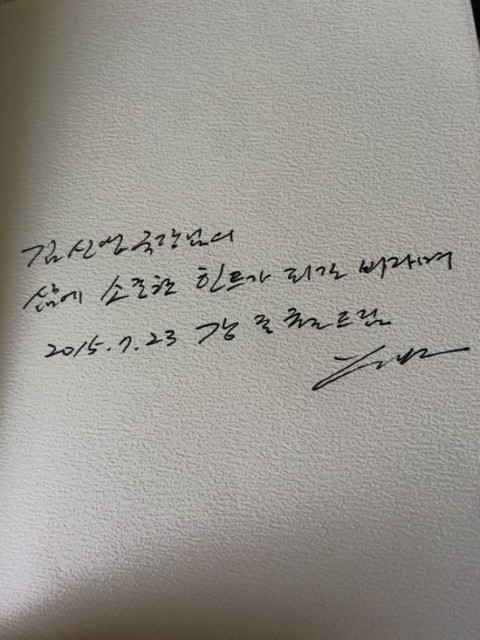 김신영 국장님의
삶에 소중한 힌트가 되길 바라며
2015.7.23 강 드림